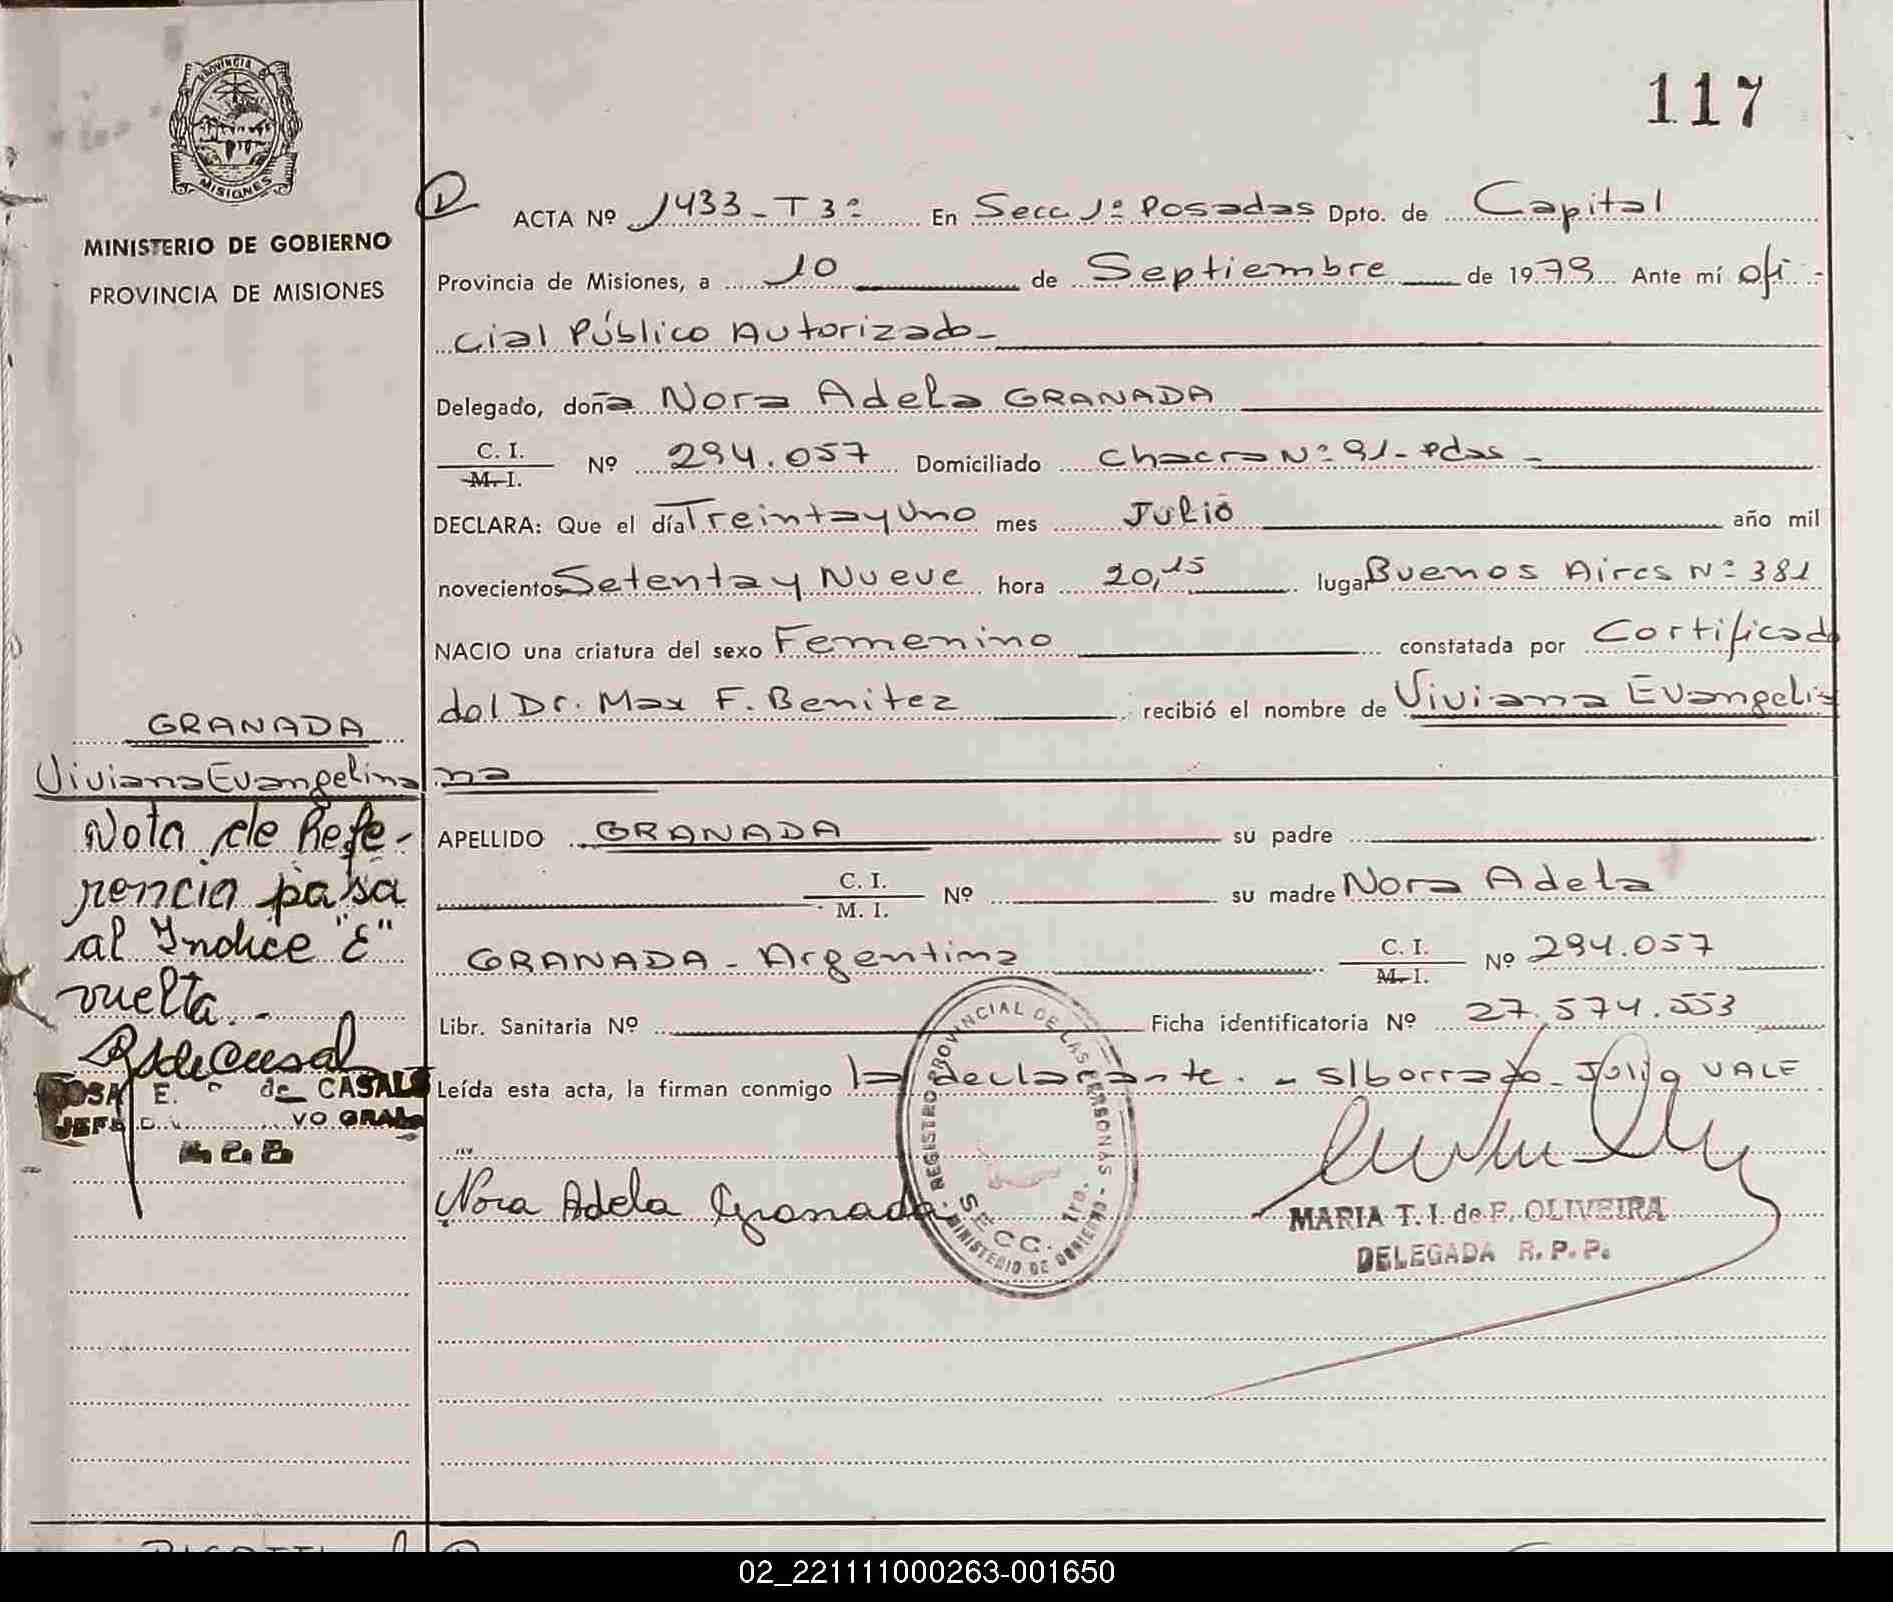 PROVINCIA DE
MISIONES
MINISTERIO DE GOBIERNO
PROVINCIA DE MISIONES
117
ACTA Nº 1433-T3º En Secc 1º Posadas Dpto. de Capital
Provincia de Misiones, a 10 de Septiembre de 1979 Ante mí ofi-
cial Público Autorizado-
Delegado, doña Nora Adela GRANADA
C. I. M. I. Nº 294.057 Domiciliado Chacra Nº 91- Pdas -
DECLARA: Que el día Treinta y Uno mes Julio año mil
novecientos Setenta y Nueve hora 20,15 lugar Buenos Aires Nº 381
NACIO una criatura del sexo Femenino constatada por Certificado
del Dr. Max F. Benitez recibió el nombre de Viviana Evangeli
na
APELLIDO GRANADA su padre
C. I. M. I. Nº su madre Nora Adela
GRANADA - Argentina C. I. M. I. Nº 294.057
Libr. Sanitaria Nº Ficha identificatoria Nº 27.574.553
Leída esta acta, la firman conmigo la declarante. - s/borrado- Julio VALE
Nora Adela Granada
REGISTRO PROVINCIAL DE LAS PERSONAS - MINISTERIO DE GOBIERNO
SECC. 1ra.
MARIA T. I. de F. OLIVEIRA
DELEGADA R. P. P.
GRANADA
Viviana Evangelina
Nota de Refe-
rencia pasa
al Indice "E"
vuelta.-
E. de CASALS
JEFE VO GRAL
02_221111000263-001650